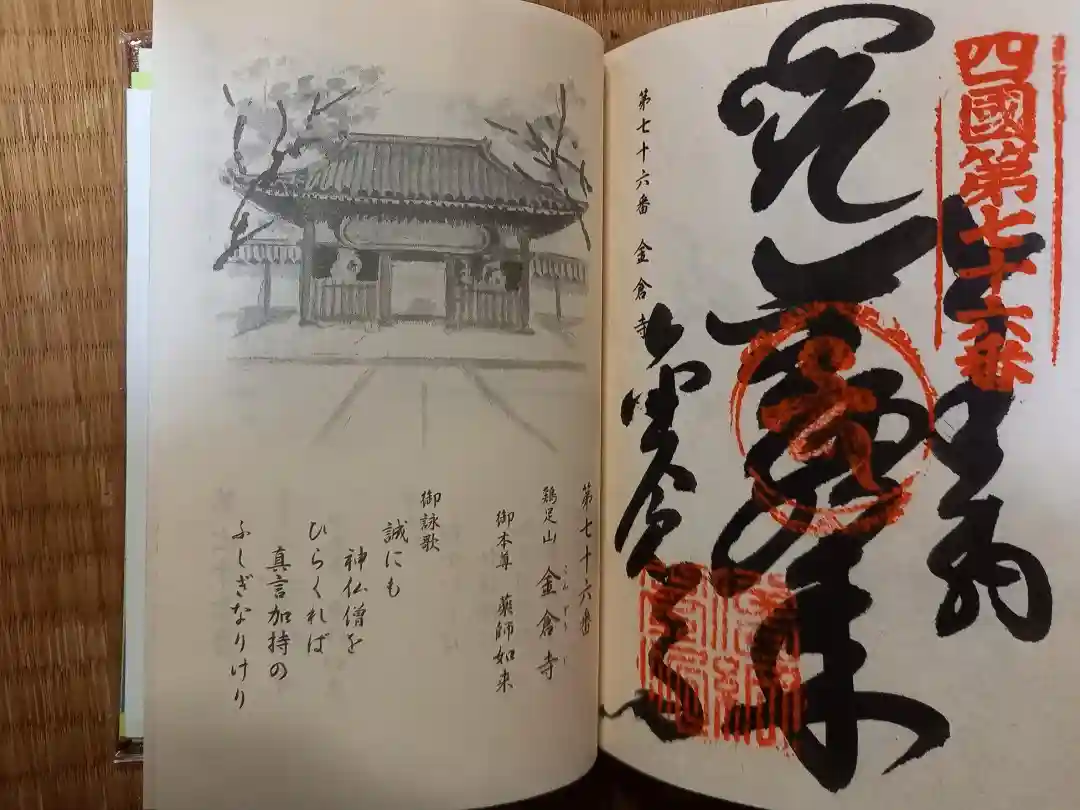 四國第七十六番
奉納
第七十六番 金倉寺
第七十六番
鶏足山 金倉寺
御本尊 薬師如来
御詠歌
誠にも
神仏僧を
ひらくれば
真言加持の
ふしぎなりけり